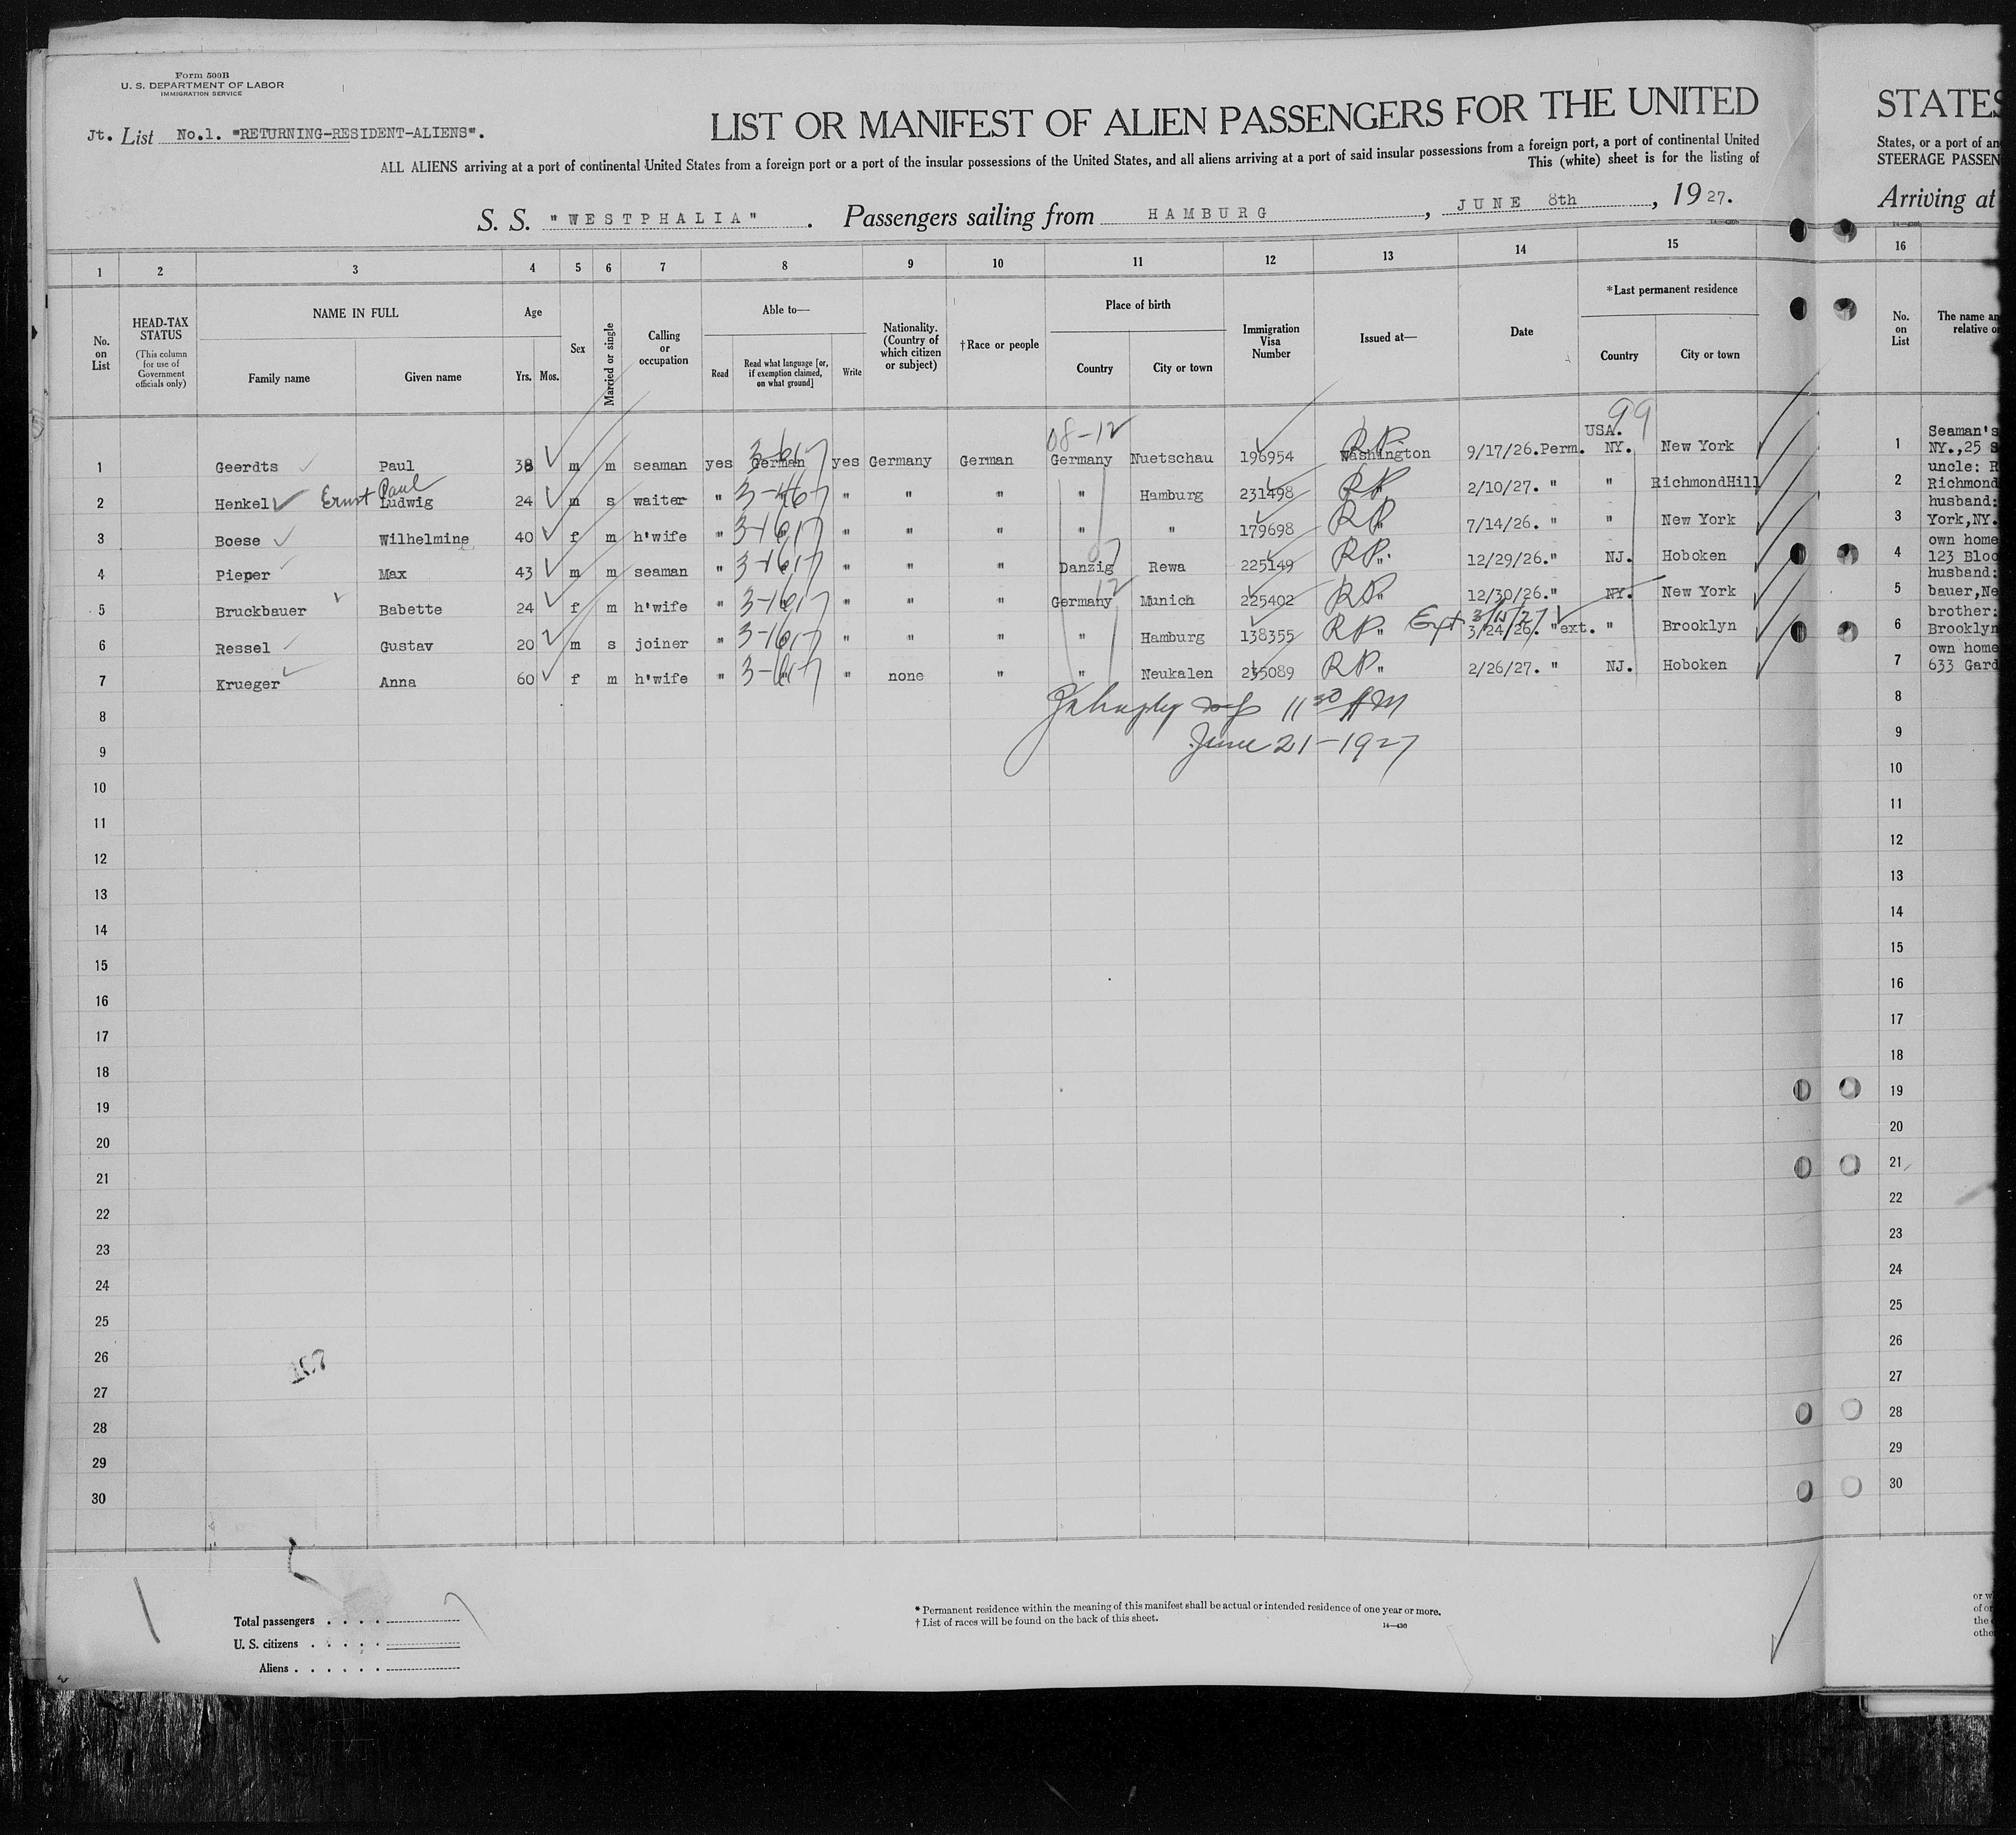 Form 500B
U. S. DEPARTMENT OF LABOR
IMMIGRATION SERVICE
Jt. List No.1. "RETURNING-RESIDENT-ALIENS".
LIST OR MANIFEST OF ALIEN PASSENGERS FOR THE UNITED
ALL ALIENS arriving at a port of continental United States from a foreign port or a port of the insular possessions of the United States, and all aliens arriving at a port of said insular possessions from a foreign port, a port of continental United
This (white) sheet is for the listing of
S. S. "WESTPHALIA". Passengers sailing from HAMBURG, JUNE 8th, 1927.
1 2 3 4 5 6 7 8 9 10 11 12 13 14 15
No. on List
HEAD-TAX STATUS
(This column for use of Government officials only)
NAME IN FULL
Family name Given name
Age
Yrs. Mos.
Sex
Married or single
Calling or occupation
Able to—
Read
Read what language [or, if exemption claimed, on what ground]
Write
Nationality. (Country of which citizen or subject)
†Race or people
Place of birth
Country City or town
Immigration Visa Number
Issued at—
Date
*Last permanent residence
Country City or town
08-12 99
USA.
1 Geerdts Paul 38 m m seaman yes German yes Germany German Germany Nuetschau 196954 RP Washington 9/17/26.Perm. NY. New York
2 Henkel Ernst Paul Ludwig 24 m s waiter " " " " " Hamburg 231498 RP " 2/10/27. " " RichmondHill
3 Boese Wilhelmine 40 f m h'wife " " " " " " 179698 RP " 7/14/26. " " New York
4 Pieper Max 43 m m seaman " " " " Danzig Rewa 225149 RP " 12/29/26." NJ. Hoboken
5 Bruckbauer Babette 24 f m h'wife " " " " Germany 12 Munich 225402 RP " 12/30/26." NY. New York
6 Ressel Gustav 20 m s joiner " " " " " Hamburg 138355 RP " Ext 3/24/26. "ext. " Brooklyn
7 Krueger Anna 60 f m h'wife " " none " " Neukalen 235089 RP " 2/26/27. " NJ. Hoboken
8 11 30 AM
9 June 21-1927
10
11
12
13
14
15
16
17
18
19
20
21
22
23
24
25
26
27
28
29
30
Total passengers . . . .
U. S. citizens . . . . .
Aliens . . . . . .
* Permanent residence within the meaning of this manifest shall be actual or intended residence of one year or more.
† List of races will be found on the back of this sheet.
14—430
STATES
States, or a port of an
STEERAGE PASSEN
Arriving at
16
No. on List
The name an
relative o
1 Seaman's
NY.,25 S
2 uncle: R
Richmond
3 husband:
York,NY.
4 own home
123 Bloo
5 husband:
bauer,Ne
6 brother:
Brooklyn
7 own home
633 Gard
8
9
10
11
12
13
14
15
16
17
18
19
20
21
22
23
24
25
26
27
28
29
30
or w
of or
the
othe